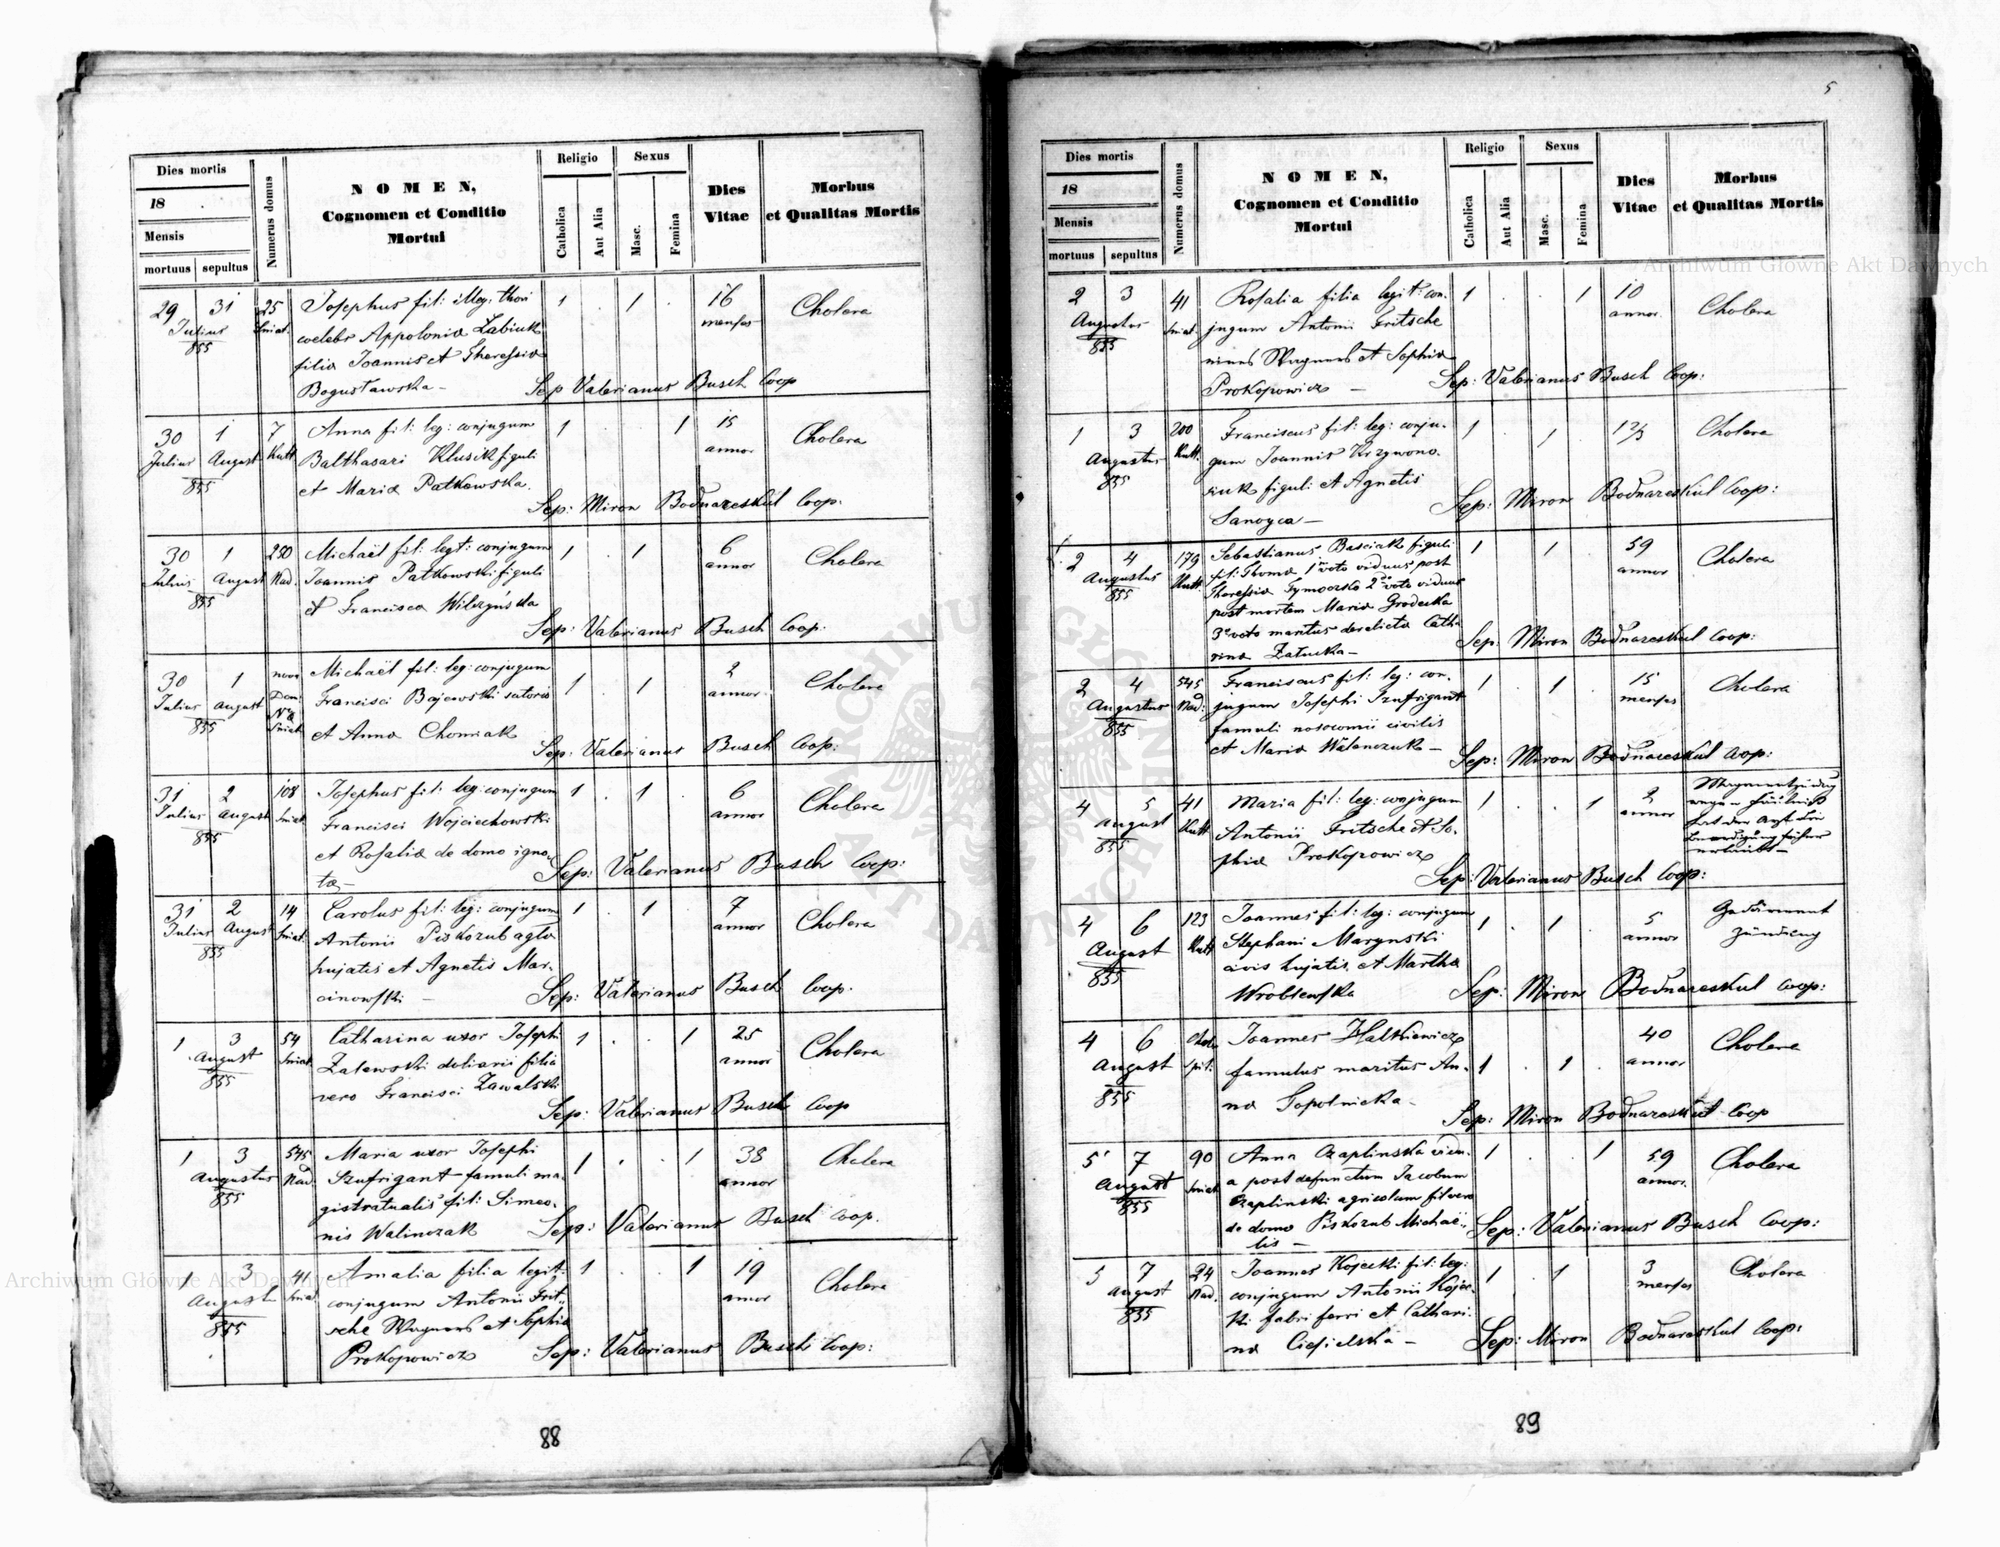 5
Dies mortis
18
Mensis
mortuus sepultus
Numerus domus
NOMEN,
Cognomen et Conditio
Mortui
Religio
Catholica
Aut Alia
Sexus
Masc.
Femina
Dies
Vitae
Morbus
et Qualitas Mortis
29 31 25 Josephus fil: illeg: thori 1 . 1 . 16 Cholera
Julius Sniat. coelebs Appolonia Labiuk menses
855 filia Joannis et Theressia
Bogusławska – Sep Valerianus Busch Coop
30 1 7 Anna fil: leg: conjugum 1 . . 1 15 Cholera
Julius August Kutt. Balthasari Klusik figuli annor
855 et Maria Patkowska. Sep: Miron Bodnareskul Coop:
30 1 250 Michaël fil: legt: conjugum 1 . 1 6 Cholera
Julius August Nad. Joannis Patkowski figuli annor
855 et Francisca Wilczyńska
Sep: Valerianus Busch Coop:
30 1 Michaël fil: leg: conjugum 1 . 1 2 Cholera
Julius August Francisci Bajewski sutoris annor.
855 Sniat. et Anna Chomiak
Sep: Valerianus Busch Coop:
31 2 108 Josephus fil: leg: conjugum 1 . 1 . 6 Cholera
Julius August Sniat. Francisci Wojciechowski annor
855 et Rosalia de domo igno-
ta – Sep: Valerianus Busch Coop:
31 2 14 Carolus fil: leg: conjugum 1 . 1 . 7 Cholera
Julius August Sniat. Antonii Piskozub agla annor
855 hujatis et Agnetis Mar-
cinowski – Sep: Valerianus Busch Coop.
1 3 54 Catharina uxor Josephi 1 . . 1 25 Cholera
August Sniat. Zalewski doliarii filia annor
855 vero Francisci Zawalski
Sep: Valerianus Busch Coop
1 3 545 Maria uxor Josephi 1 . . 1 38 Cholera
Augustus Nad. Szufrigant famuli ma- annor
855 gistratualis fil: Simeo-
nis Walinczak Sep: Valerianus Busch Coop.
1 3 41 Amalia filia legit: 1 . . 1 19 Cholera
August Sniat. conjugum Antonii Frit- annor
855 sche Wagners et Sophia
Prokopowicz Sep: Valerianus Busch Coop:
88
Dies mortis
18
Mensis
mortuus sepultus
Numerus domus
NOMEN,
Cognomen et Conditio
Mortui
Religio
Catholica
Aut Alia
Sexus
Masc.
Femina
Dies
Vitae
Morbus
et Qualitas Mortis
2 3 41 Rosalia filia legit: con- 1 . . 1 10 Cholera
Augustus Sniat. jugum Antonii Fritsche annor.
855 Wagners et Sophia
Prokopowicz – Sep: Valerianus Busch Coop:
1 3 200 Franciscus fil: leg: conju- 1 . 1 . Cholera
Augustus Kutt. gum Joannis Krzywono-
855 siuk figuli et Agnetis
Sanoyca – Sep: Miron Bodnareskul Coop:
2 4 179 Sebastianus Basciak figuli 1 1 . 59 Cholera
Augustus Kutt. fil: Thoma 1mo voto viduus post annor
855 Theressia Tymoczko 2do voto viduus
post mortem Maria Grodecka
3o voto maritus derelicta Catha
rina Załucka – Sep: Miron Bodnareskul Coop:
2 4 545 Franciscus fil: leg: con- 1 . 1 . 15 Cholera
Augustus Nad: jugum Josephi Szufrigant menses
855 famuli nosocomii civilis
et Maria Walanczuk – Sep: Miron Bodnareskul Coop:
4 5 41 Maria fil: leg: conjugum 1 . . 1 2
August Kutt Antonii Fritsche et So- annor hat der Arzt die
855 phia Prokopowicz Beerdigung früher
erlaubt –
Sep: Valerianus Busch Coop:
4 6 123 Joannes fil: leg: conjugum 1 . 1 . 5 Gedärment
August Kutt Stephani Marynski annor zündung
855 civis hujatis et Martha
Wroblewska Sep: Miron Bodnareskul Coop:
4 6 Joannes Hałkiewicz 40 Cholera
August spit: famulus maritus An- 1 . 1 . annor
855 na Topolnicka –
Sep: Miron Bodnareskul Coop
5 7 90 Anna Czaplinska vidu- 1 . . 1 59 Cholera
August Sniat. a post defunctum Jacobum annor.
855 Czaplinski agricolam fil vero
de domo Piskozub Michaë-
lis – Sep: Valerianus Busch Coop:
5 7 24 Joannes Kojecki fil: leg: 1 . 1 3 Cholera
August Nad. conjugum Antonii Kojec- menses
855 ki fabri ferri et Cathari-
na Ciesielska – Sep: Miron Bodnareskul Coop:
89
Archiwum Główne Akt Dawnych
Archiwum Główne Akt Dawnych
ARCHIWUM GŁÓWNE AKT DAWNYCH